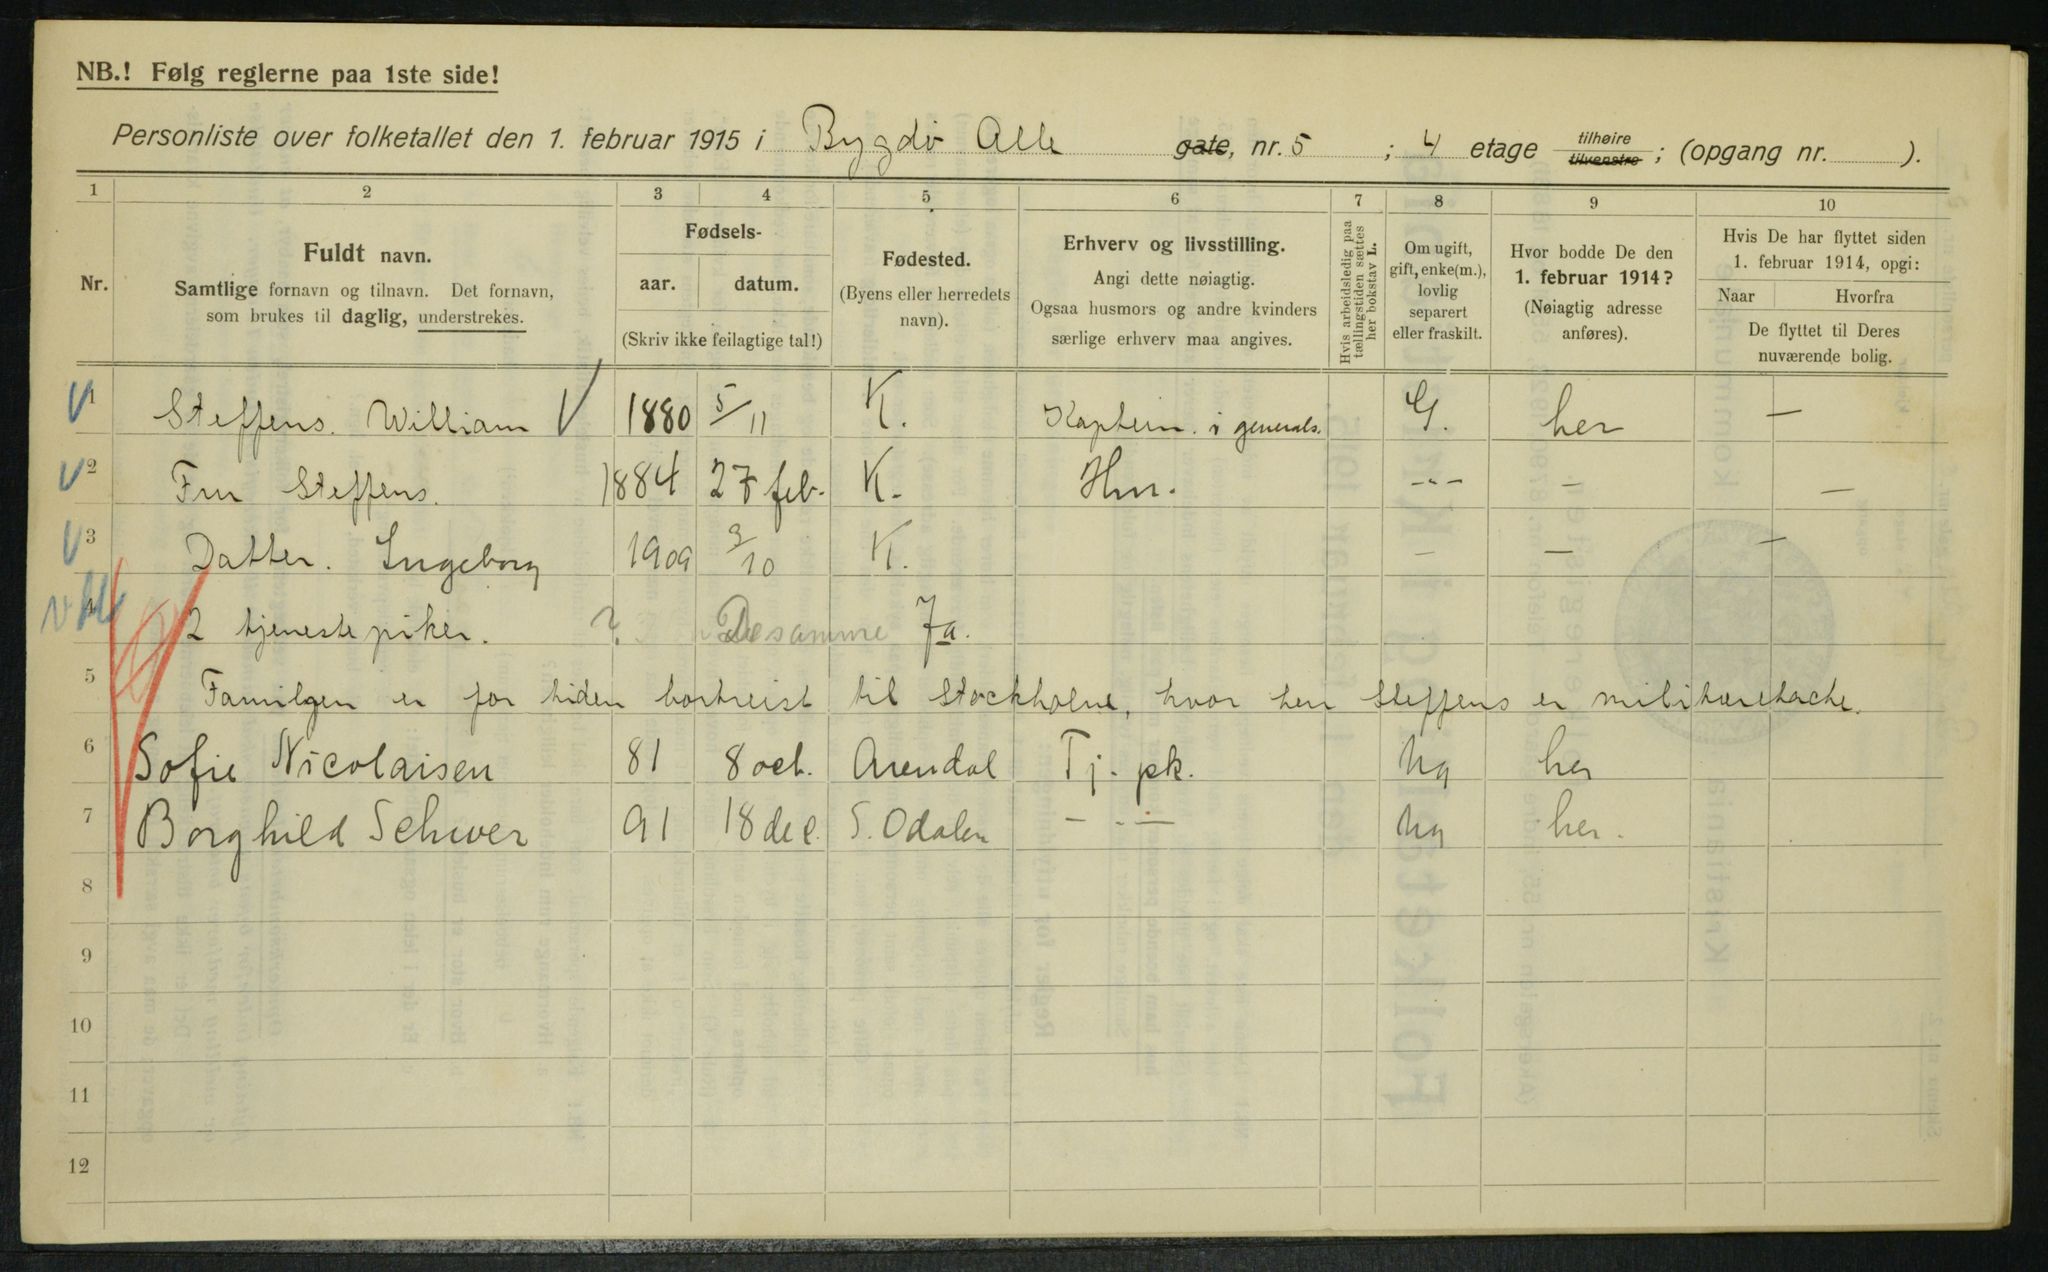 NB.! Følg reglerne paa 1ste side!
Personliste over folketallet den 1. februar 1915 i Bygdö Alle gate, nr. 5 ; 4 etage tilhøire tilvenstre ; (opgang nr. ).
1 2 3 4 5 6 7 8 9 10
Nr.
Fuldt navn.
Samtlige fornavn og tilnavn. Det fornavn,
som brukes til daglig, understrekes.
Fødsels-
aar. datum.
(Skriv ikke feilagtige tal!)
Fødested.
(Byens eller herredets
navn).
Erhverv og livsstilling.
Angi dette nøiagtig.
Ogsaa husmors og andre kvinders
særlige erhverv maa angives.
Hvis arbeidsledig paa
tællingstiden sættes
her bokstav L.
Om ugift,
gift, enke(m.),
lovlig
separert
eller fraskilt.
Hvor bodde De den
1. februar 1914?
(Nøiagtig adresse
anføres).
Hvis De har flyttet siden
1. februar 1914, opgi:
Naar Hvorfra
De flyttet til Deres
nuværende bolig.
1 Steffens. William V 1880 5/11 K. Kaptein i generals. G. her —
2 Fru Steffens. 1884 27 feb. K. Hm. — — —
3 Datter. Ingeborg 1909 3/10 K. — — —
4 2 tjenestepiker. ? De samme Ja.
5 Familjen er for tiden bortreist til Stockholm, hvor herr Steffens er militæretache.
6 Sofie Nicolaisen 81 8 oct. Arendal Tj. pk. Ug her
7 Borghild Schwer 91 18 dec. S. Odalen — — Ug her.
8
9
10
11
12